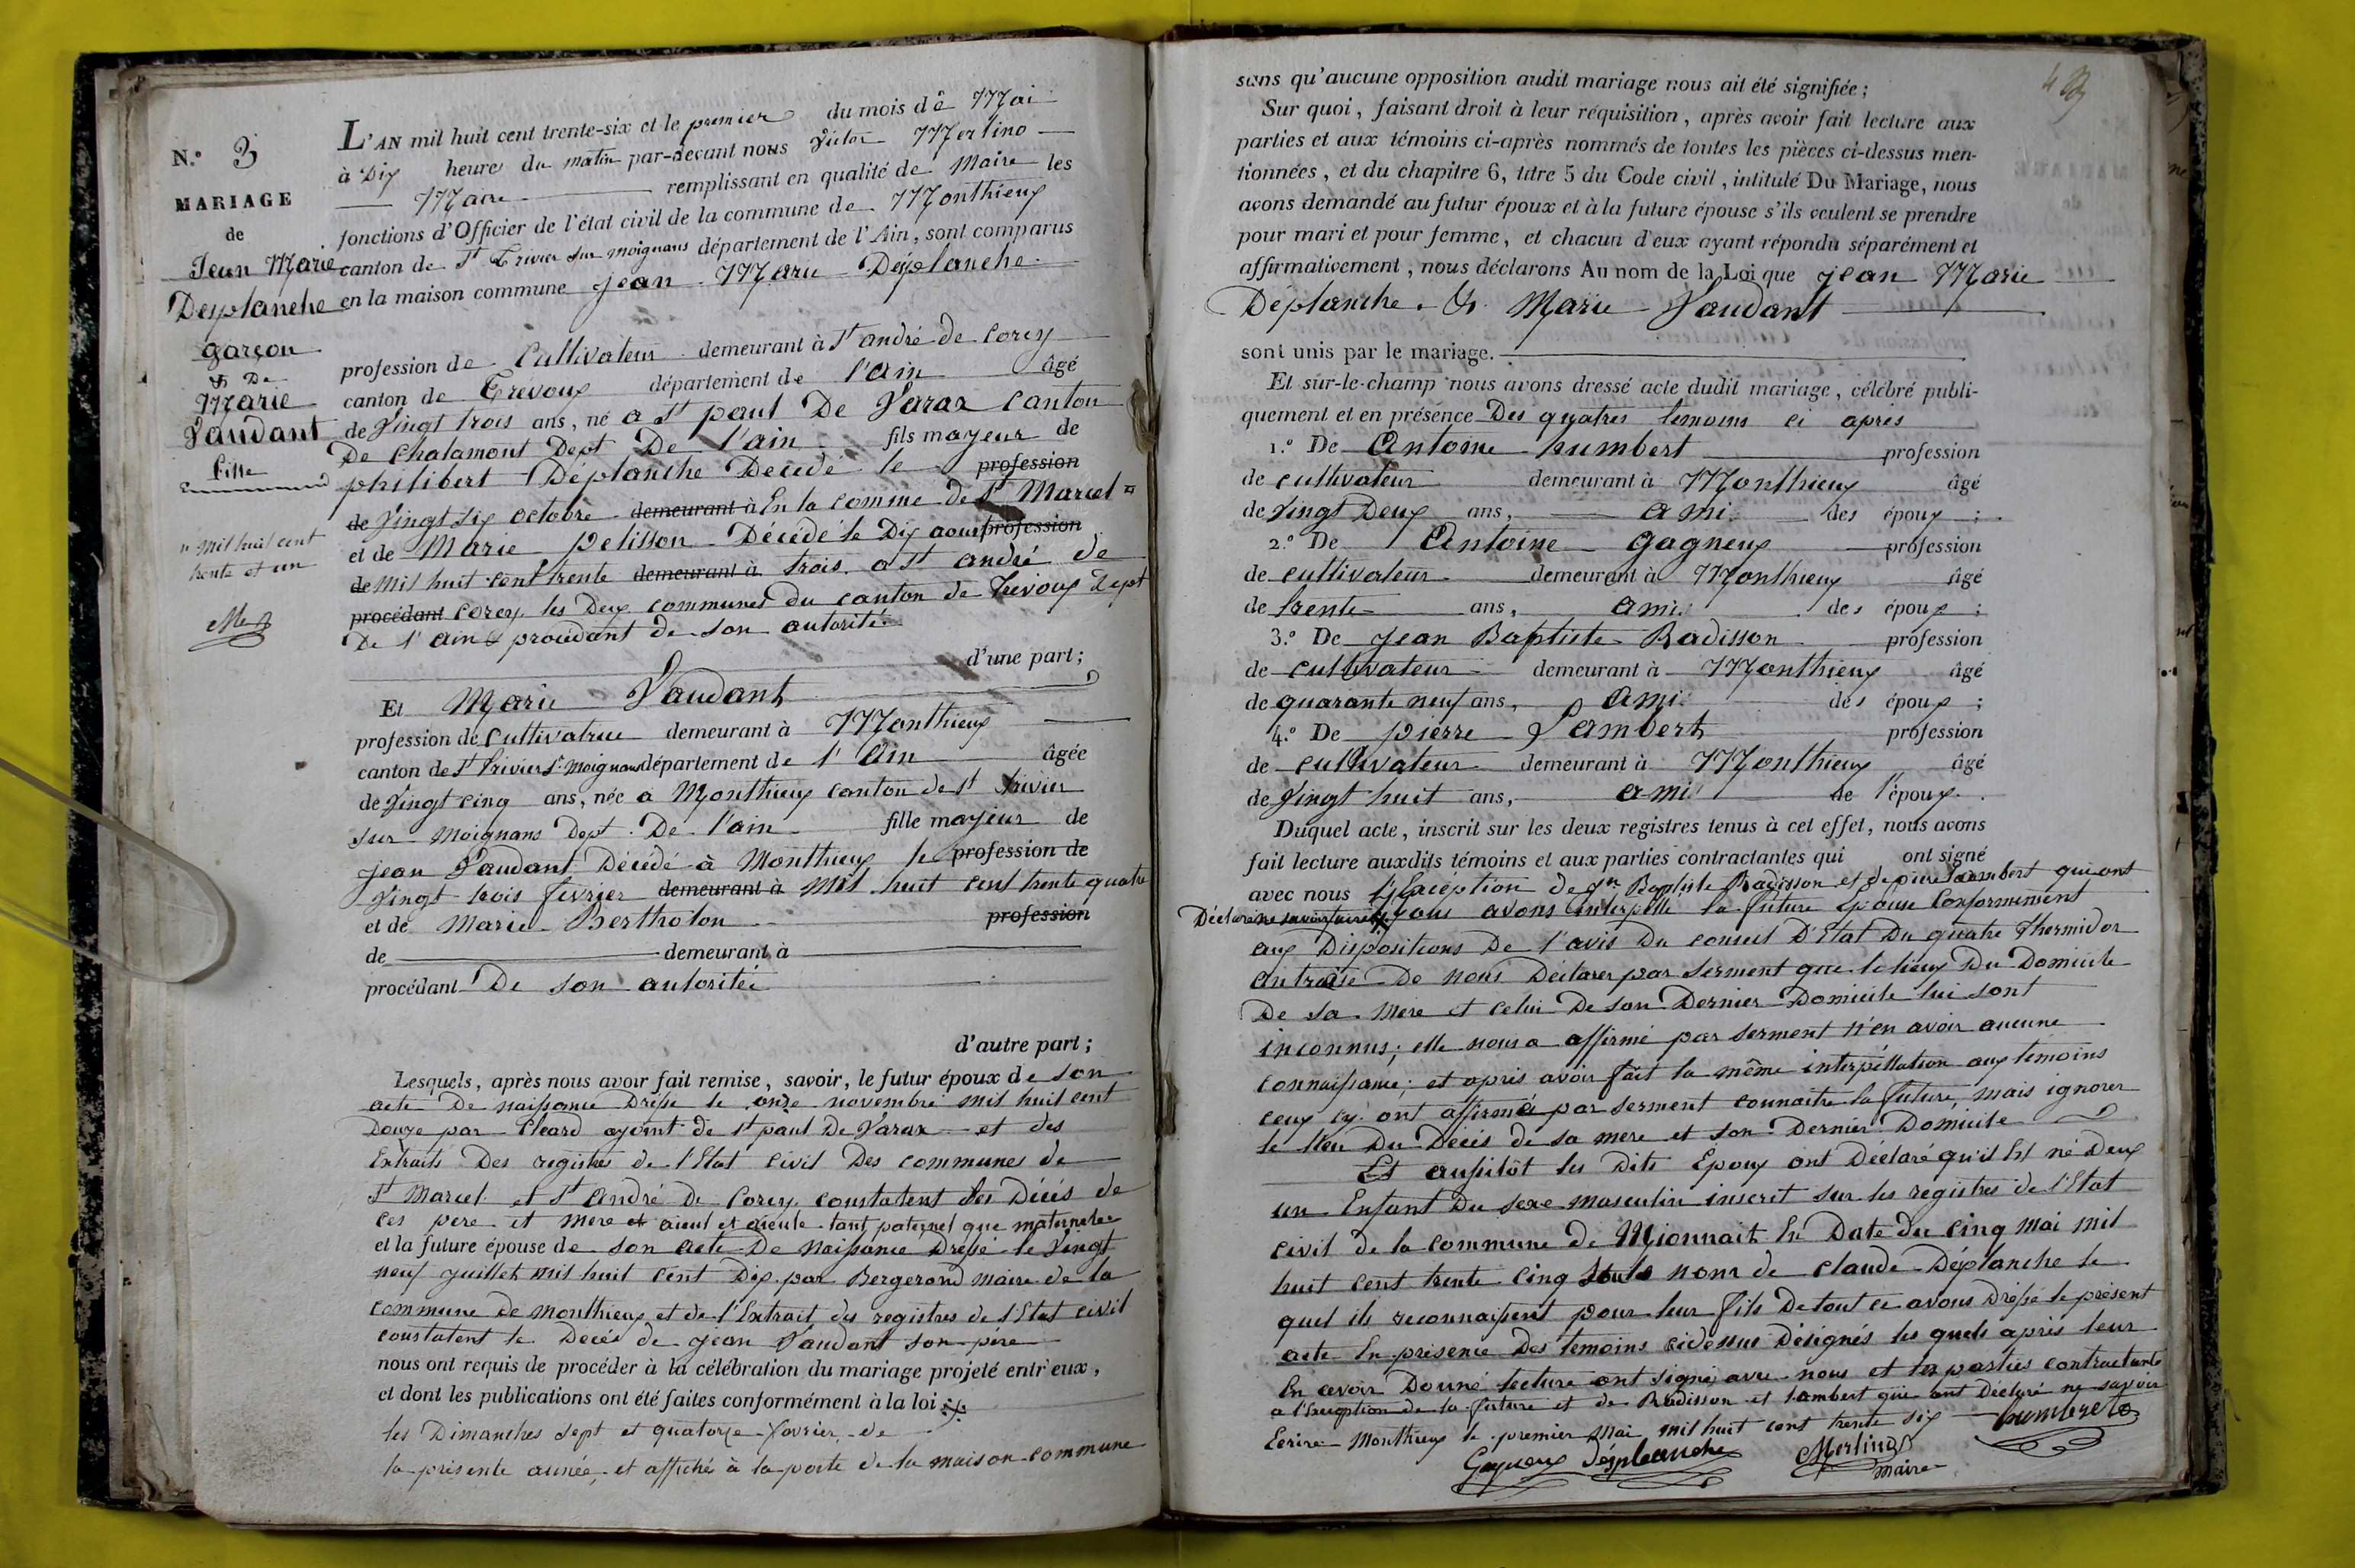 N.º 3
MARIAGE
de
Jean Marie
Desplanche
garçon
& De
Marie
Vaudant
fille
" Mil huit cent
trente et un
L'AN mil huit cent trente-six et le premier du mois de Mai
à Dix heures du matin par-devant nous Victor Merlino
Maire remplissant en qualité de Maire les
fonctions d'Officier de l'état civil de la commune de Monthieux
canton de St Trivier sur moignans département de l'Ain, sont comparus
en la maison commune Jean Marie Déplanche
profession de Cultivateur demeurant à St andré de Corcy
canton de Trevoux département de l'ain âgé
de Vingt trois ans, né a St paul De Varax canton
De Chalamont Dept De l'ain fils mayeur de
philibert Déplanche Décédé le profession
de Vingt six octobre demeurant à En la comme de St Marcel "
et de Marie pelisson Décédé le Dix aout profession
de Mil huit cent trente demeurant à trois a St andré de
procédant corcy les Deux communes du canton de Trevoux Dept
De l'ain & procédant de son autorité
d'une part;
Et Marie Vaudant
profession de Cultivatrice demeurant à Monthieux
canton de St Trivier Sr Moignans département de l'Ain âgée
de Vingt cinq ans, née a Monthieux canton de St Trivier
sur Moignans Dept De l'ain fille mayeur de
jean Vaudant Décédé à Monthieux le profession de
Vingt trois fevrier demeurant à Mil huit cent trente quatre
et de Marie Bertholon profession
de demeurant à
procédant De son autorité
d'autre part;
Lesquels, après nous avoir fait remise, savoir, le futur époux de son
acte De naissance Dressé le onze novembre mil huit cent
Douze par Cleard ajoint de St paul De Varax et des
Extraits Des registres de l'Etat civil Des communes de
St Marcel et St André De Corcy constatent les Décés de
ces pere et mere et aieul et aieule tant paternel que maternelle
et la future épouse de son acte De Naissance Dressé le Vingt
neuf juillet mil huit cent Dix par Bergerond maire de la
commune de Monthieux et de l'Extrait des registres de l'Etat civil
constatent le Décés de jean Vaudant son père
nous ont requis de procéder à la célébration du mariage projeté entr'eux,
et dont les publications ont été faites conformément à la loi
les Dimanches sept et quatorze fevrier de
la présente année, et affiché à la porte de la maison commune
sans qu'aucune opposition audit mariage nous ait été signifiée;
Sur quoi, faisant droit à leur réquisition, après avoir fait lecture aux
parties et aux témoins ci-après nommés de toutes les pièces ci-dessus men-
tionnées, et du chapitre 6, titre 5 du Code civil, intitulé Du Mariage, nous
avons demandé au futur époux et à la future épouse s'ils veulent se prendre
pour mari et pour femme, et chacun d'eux ayant répondu séparément et
affirmativement, nous déclarons Au nom de la Loi que jean Marie
Déplanche & Marie Vaudant
sont unis par le mariage.
Et sur-le-champ nous avons dressé acte dudit mariage, célébré publi-
quement et en présence Des quatres temoins ci après
1.º De Antoine humbert profession
de cultivateur demeurant à Monthieux âgé
de Vingt Deux ans, ami des époux;
2.º De Antoine gagneux profession
de cultivateur demeurant à Monthieux âgé
de trente ans, ami des époux;
3.º De jean Baptiste Radisson profession
de cultivateur demeurant à Monthieux âgé
de quarante neuf ans, ami des époux;
4.º De pierre Lambert profession
de cultivateur demeurant à Monthieux âgé
de Vingt huit ans, ami de l'époux.
Duquel acte, inscrit sur les deux registres tenus à cet effet, nous avons
fait lecture auxdits témoins et aux parties contractantes qui ont signé
avec nous à l'Exception de Jn Baptiste Radisson et de pierre Lambert qui ont
Déclaré ne savoir faire Nous avons interpellé la future Epouse Conformement
aux Dispositions De l'avis Du conseil D'Etat Du quatre Thermidor
an treize De nous Déclarer par serment que le lieux Du Domicile
De sa Mere et celui De son Dernier Domicile lui sont
inconnus; elle nous a affirmé par serment n'en avoir aucune
connaissance; et après avoir fait la même interpéllation aux témoins
ceux cy ont affirmé par serment connaitre la future, mais ignorer
le lieu Du Décés de sa mere et son Dernier Domicile
Et aussitôt les Dits Epoux ont Déclaré qu'il Est né Deux
un Enfant Du sexe masculin inscrit sur les registres de l'Etat
civil de la commune de Mionnait En Date du cinq mai mil
huit cent trente cinq sous le nom de claude Déplanche le
quel ils reconnaissent pour leur fils De tout ce avons Dressé le présent
acte En présence Des temoins cidessus Désignés les quels après leur
En avoir Donné lecture ont signé avec nous et les parties contractante
a l'Exception de la future et de Radisson et Lambert qui ont Déclaré ne savoir
Ecrire Monthieux le premier Mai mil huit cent trente six humbert
Gagneux Désplanche Merlino
maire